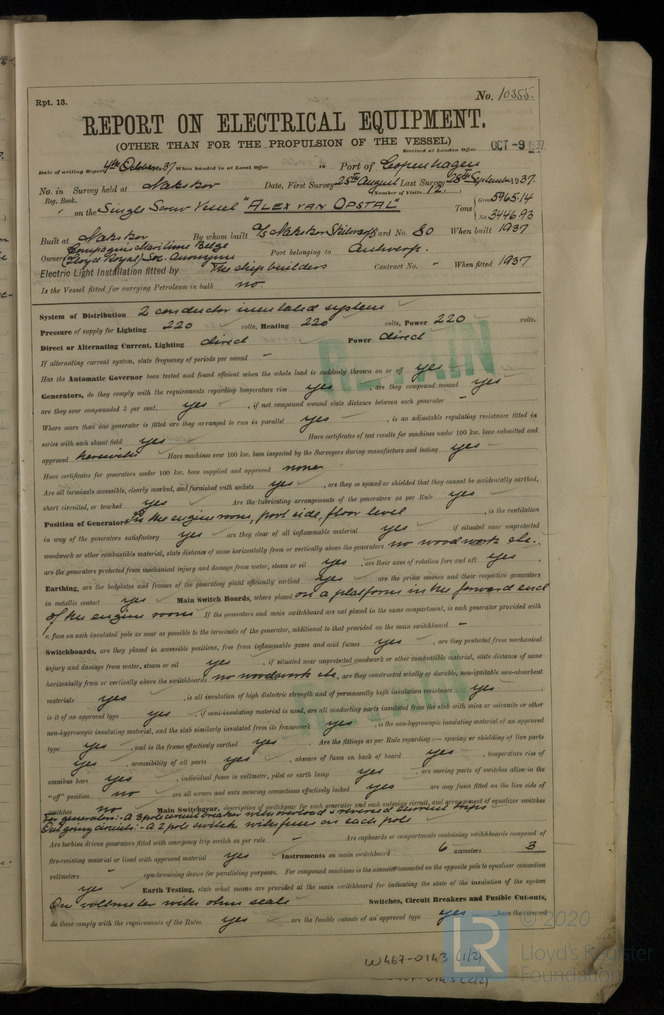 Rpt. 13.
No. 10355.
REPORT ON ELECTRICAL EQUIPMENT.
(OTHER THAN FOR THE PROPULSION OF THE VESSEL)
Received at London Office OCT -9 1937
Date of writing Report 4th October 37 When handed in at Local Office 19 Port of Copenhagen
No. in Survey held at Nakskov Date, First Survey 25th August Last Survey 28th September 1937.
Reg. Book. (Number of Visits 12.)
on the Single Screw Vessel "ALEX VAN OPSTAL" Tons Gross 5965.14
Net 3446.93
Built at Nakskov By whom built A/S Nakskov Skibsværft Yard No. 80 When built 1937
Owners Compagnie Maritime Belge (Lloyd Royal) Soc. Anonyme Port belonging to Antwerp.
Electric Light Installation fitted by The shipbuilders Contract No. - When fitted 1937
Is the Vessel fitted for carrying Petroleum in bulk no
System of Distribution 2 conductor insulated system
Pressure of supply for Lighting 220 volts, Heating 220 volts, Power 220 volts.
Direct or Alternating Current, Lighting direct Power direct
If alternating current system, state frequency of periods per second -
Has the Automatic Governor been tested and found efficient when the whole load is suddenly thrown on or off yes
Generators, do they comply with the requirements regarding temperature rise yes, are they compound wound yes
are they over compounded 5 per cent. yes, if not compound wound state distance between each generator -
Where more than one generator is fitted are they arranged to run in parallel yes, is an adjustable regulating resistance fitted in
series with each shunt field yes Have certificates of test results for machines under 100 kw. been submitted and
approved herewith Have machines over 100 kw. been inspected by the Surveyors during manufacture and testing yes
Have certificates for generators under 100 kw. been supplied and approved none
Are all terminals accessible, clearly marked, and furnished with sockets yes, are they so spaced or shielded that they cannot be accidentally earthed,
short circuited, or touched yes Are the lubricating arrangements of the generators as per Rule yes
Position of Generators In the engine room, port side, floor level, is the ventilation
in way of the generators satisfactory yes are they clear of all inflammable material yes if situated near unprotected
woodwork or other combustible material, state distance of same horizontally from or vertically above the generators no woodwork etc.
are the generators protected from mechanical injury and damage from water, steam or oil yes, are their axes of rotation fore and aft yes.
Earthing, are the bedplates and frames of the generating plant efficiently earthed yes are the prime movers and their respective generators
in metallic contact yes Main Switch Boards, where placed on a platform in the forward end
of the engine room If the generators and main switchboard are not placed in the same compartment, is each generator provided with
a fuse on each insulated pole as near as possible to the terminals of the generator, additional to that provided on the main switchboard -
Switchboards, are they placed in accessible positions, free from inflammable gases and acid fumes yes, are they protected from mechanical
injury and damage from water, steam or oil yes, if situated near unprotected woodwork or other combustible material, state distance of same
horizontally from or vertically above the switchboards no woodwork etc, are they constructed wholly of durable, non-ignitable non-absorbent
materials yes, is all insulation of high dielectric strength and of permanently high insulation resistance yes
is it of an approved type yes, if semi-insulating material is used, are all conducting parts insulated from the slab with mica or micanite or other
non-hygroscopic insulating material, and the slab similarly insulated from its framework yes, is the non-hygroscopic insulating material of an approved
type yes, and is the frame effectively earthed yes. Are the fittings as per Rule regarding:— spacing or shielding of live parts
yes, accessibility of all parts yes, absence of fuses on back of board yes, temperature rise of
omnibus bars yes, individual fuses to voltmeter, pilot or earth lamp yes, are moving parts of switches alive in the
"off" position no are all screws and nuts securing connections effectively locked yes are any fuses fitted on the live side of
switches no Main Switchgear, description of switchgear for each generator and each outgoing circuit, and arrangement of equaliser switches
For generators:- A 3 pole circuit breaker with overload & reversed current trips
Outgoing circuits:- A 2 pole switch with fuses on each pole
Are turbine driven generators fitted with emergency trip switch as per rule - Are cupboards or compartments containing switchboards composed of
fire-resisting material or lined with approved material yes Instruments on main switchboard 6 ammeters 3
voltmeters - synchronising device for paralleling purposes. For compound machines is the ammeter connected on the opposite pole to equaliser connection
yes Earth Testing, state what means are provided at the main switchboard for indicating the state of the insulation of the system
One voltmeter with ohm scale Switches, Circuit Breakers and Fusible Cut-outs,
do these comply with the requirements of the Rules yes, are the fusible cutouts of an approved type yes have the reversed
RETAIN
RETAIN
W467-0143 (1/2)
© 2020
LR
Lloyd's Register
Foundation